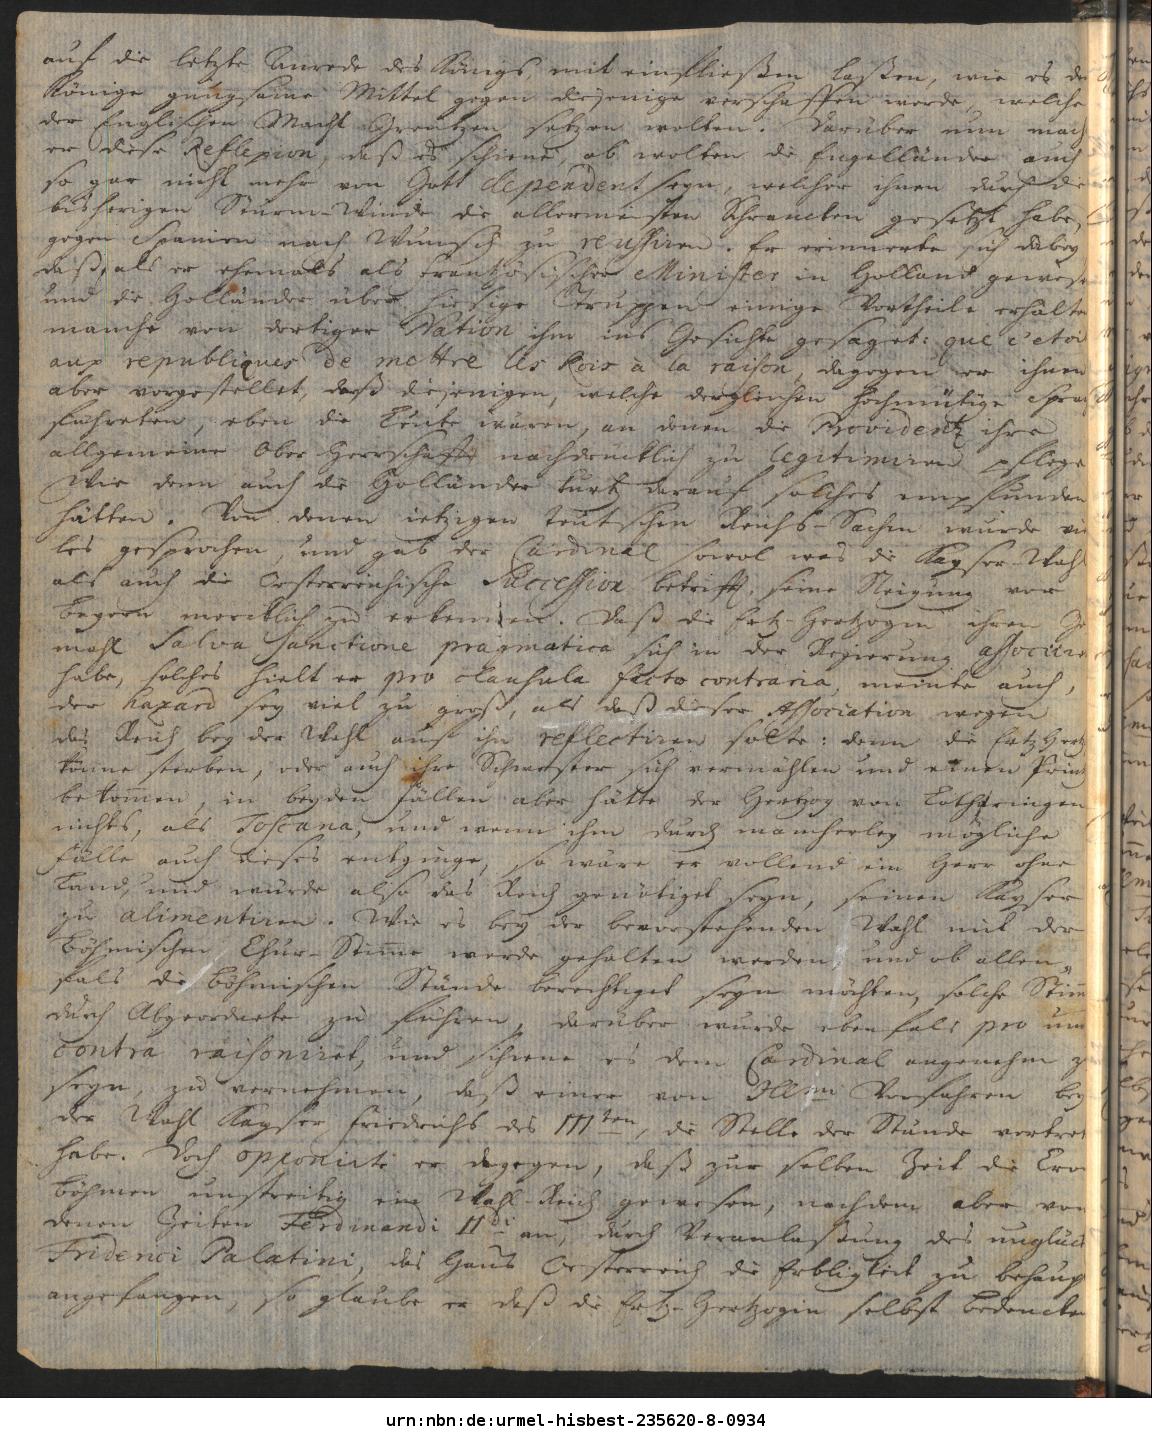 auf die letzte Anrede des Königs, mit einfließen laßen, wie es de
Könige gnugsame Mittel gegen diejenige verschaffen werde, welche
der Englischen Macht Grentzen setzen wolten. Darüber nun mach
er diese Reflexion, daß es schiene, ob wolten die Engelländer auch
so gar nicht mehr von Gott dependent seyn, welcher ihnen durch die
bisherigen Sturm-Winde die allermeisten Schrancken gesetzt habe,
gegen Spanien nach Wunsch zu reussiren. Er erinnerte sich dabey
daß, als er ehemals als frantzösischer Minister in Holland gewese
und die Holländer über hiesige Truppen einige Vortheile erhalte
manche von dortiger Nation ihm ins Gesichte gesaget: que c'etoi
aux republiques de mettre les Rois à la raison, dagegen er ihnen
aber vorgestellet, daß diejenigen, welche dergleichen hochmütige Sprac
führeten, eben die Leute wären, an denen die Providentz ihre
allgemeine Ober-Herrschafft nachdrücklich zu legitimiren pflege
Wie denn auch die Holländer kurtz darauf solches empfunden
hätten. Von denen ietzigen teutschen Reichs-Sachen wurde vie
les gesprochen, und gab der Cardinal sowol was die Kayser-Wahl
als auch die Oesterreichische Succession betrifft, seine Neigung vor
Beyern mercklich zu erkennen. Daß die Ertz-Hertzogin ihren Ge
mahl Salva Sanctione pragmatica sich in der Regierung associire
habe, solches hielt er pro clausula facto contraria, meinte auch,
der hazard sey viel zu groß, als daß dieser Association wegen
das Reich bey der Wahl auf ihn reflectiren solte: denn die Ertz-Hertz
könne sterben, oder auch ihre Schwester sich vermählen und einen Printz
bekom̅en, in beyden Fällen aber hätte der Hertzog von Lothringen
nichts, als Toscana, und wenn ihm durch mancherley mögliche
Fälle auch dieses entginge, so wäre er vollend ein Herr ohne
Land, und würde also das Reich genötiget seyn, seinen Kayser
zu alimentiren. Wie es bey der bevorstehenden Wahl mit der
Böhmischen Chur-Stim̅e werde gehalten werden, und ob allen
fals die Böhmischen Stände berechtiget seyn möchten, solche Stim̅
durch Abgeordnete zu führen, darüber wurde ebenfals pro un
contra raisoniret, und schiene es dem Cardinal angenehm z
seyn, zu vernehmen, daß einer von Vorfahren bey
der Wahl Kayser Friedrichs des IIIten, die Stelle der Stände vertret
habe. Doch opponirte er dagegen, daß zur selben Zeit die Cro
Böhmen unstreitig ein Wahl-Reich gewesen, nachdem aber von
denen Zeiten Ferdinandi IIdi an, durch Veranlaßung des unglüc
Friderici Palatini, das Haus Oesterreich die Erbligkeit zu behaup
angefangen, so glaube er daß die Ertz-Hertzogin selbst Bedencke
urn:nbn:de:urmel-hisbest-235620-8-0934